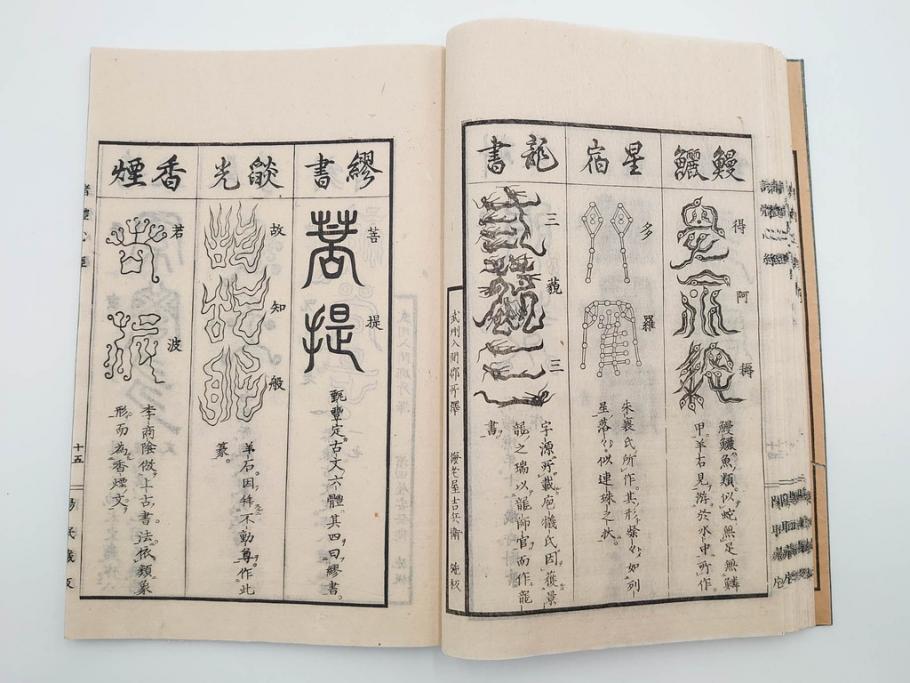 鰻鱺
得
阿
耨
鰻鱺魚類似蛇無足無鱗
甲。羊石見游於水中所作
星宿
多
羅
朱襄氏所作。其形縈々如列
星。落々似連珠之狀。
龍書
三
藐
三
字源所載庖犧氏因獲景
龍之瑞以龍師官而作龍
書。
武州入間郡所澤
海老屋吉兵衛
施板
繆書
菩
提
菩提
甄豐定古文六體。其四曰繆書。
燄光
故
知
般
羊石因拜不動尊作此
篆。
香煙
若
波
李商陰倣上古書法。依類象
形。而為香煙文。
十五